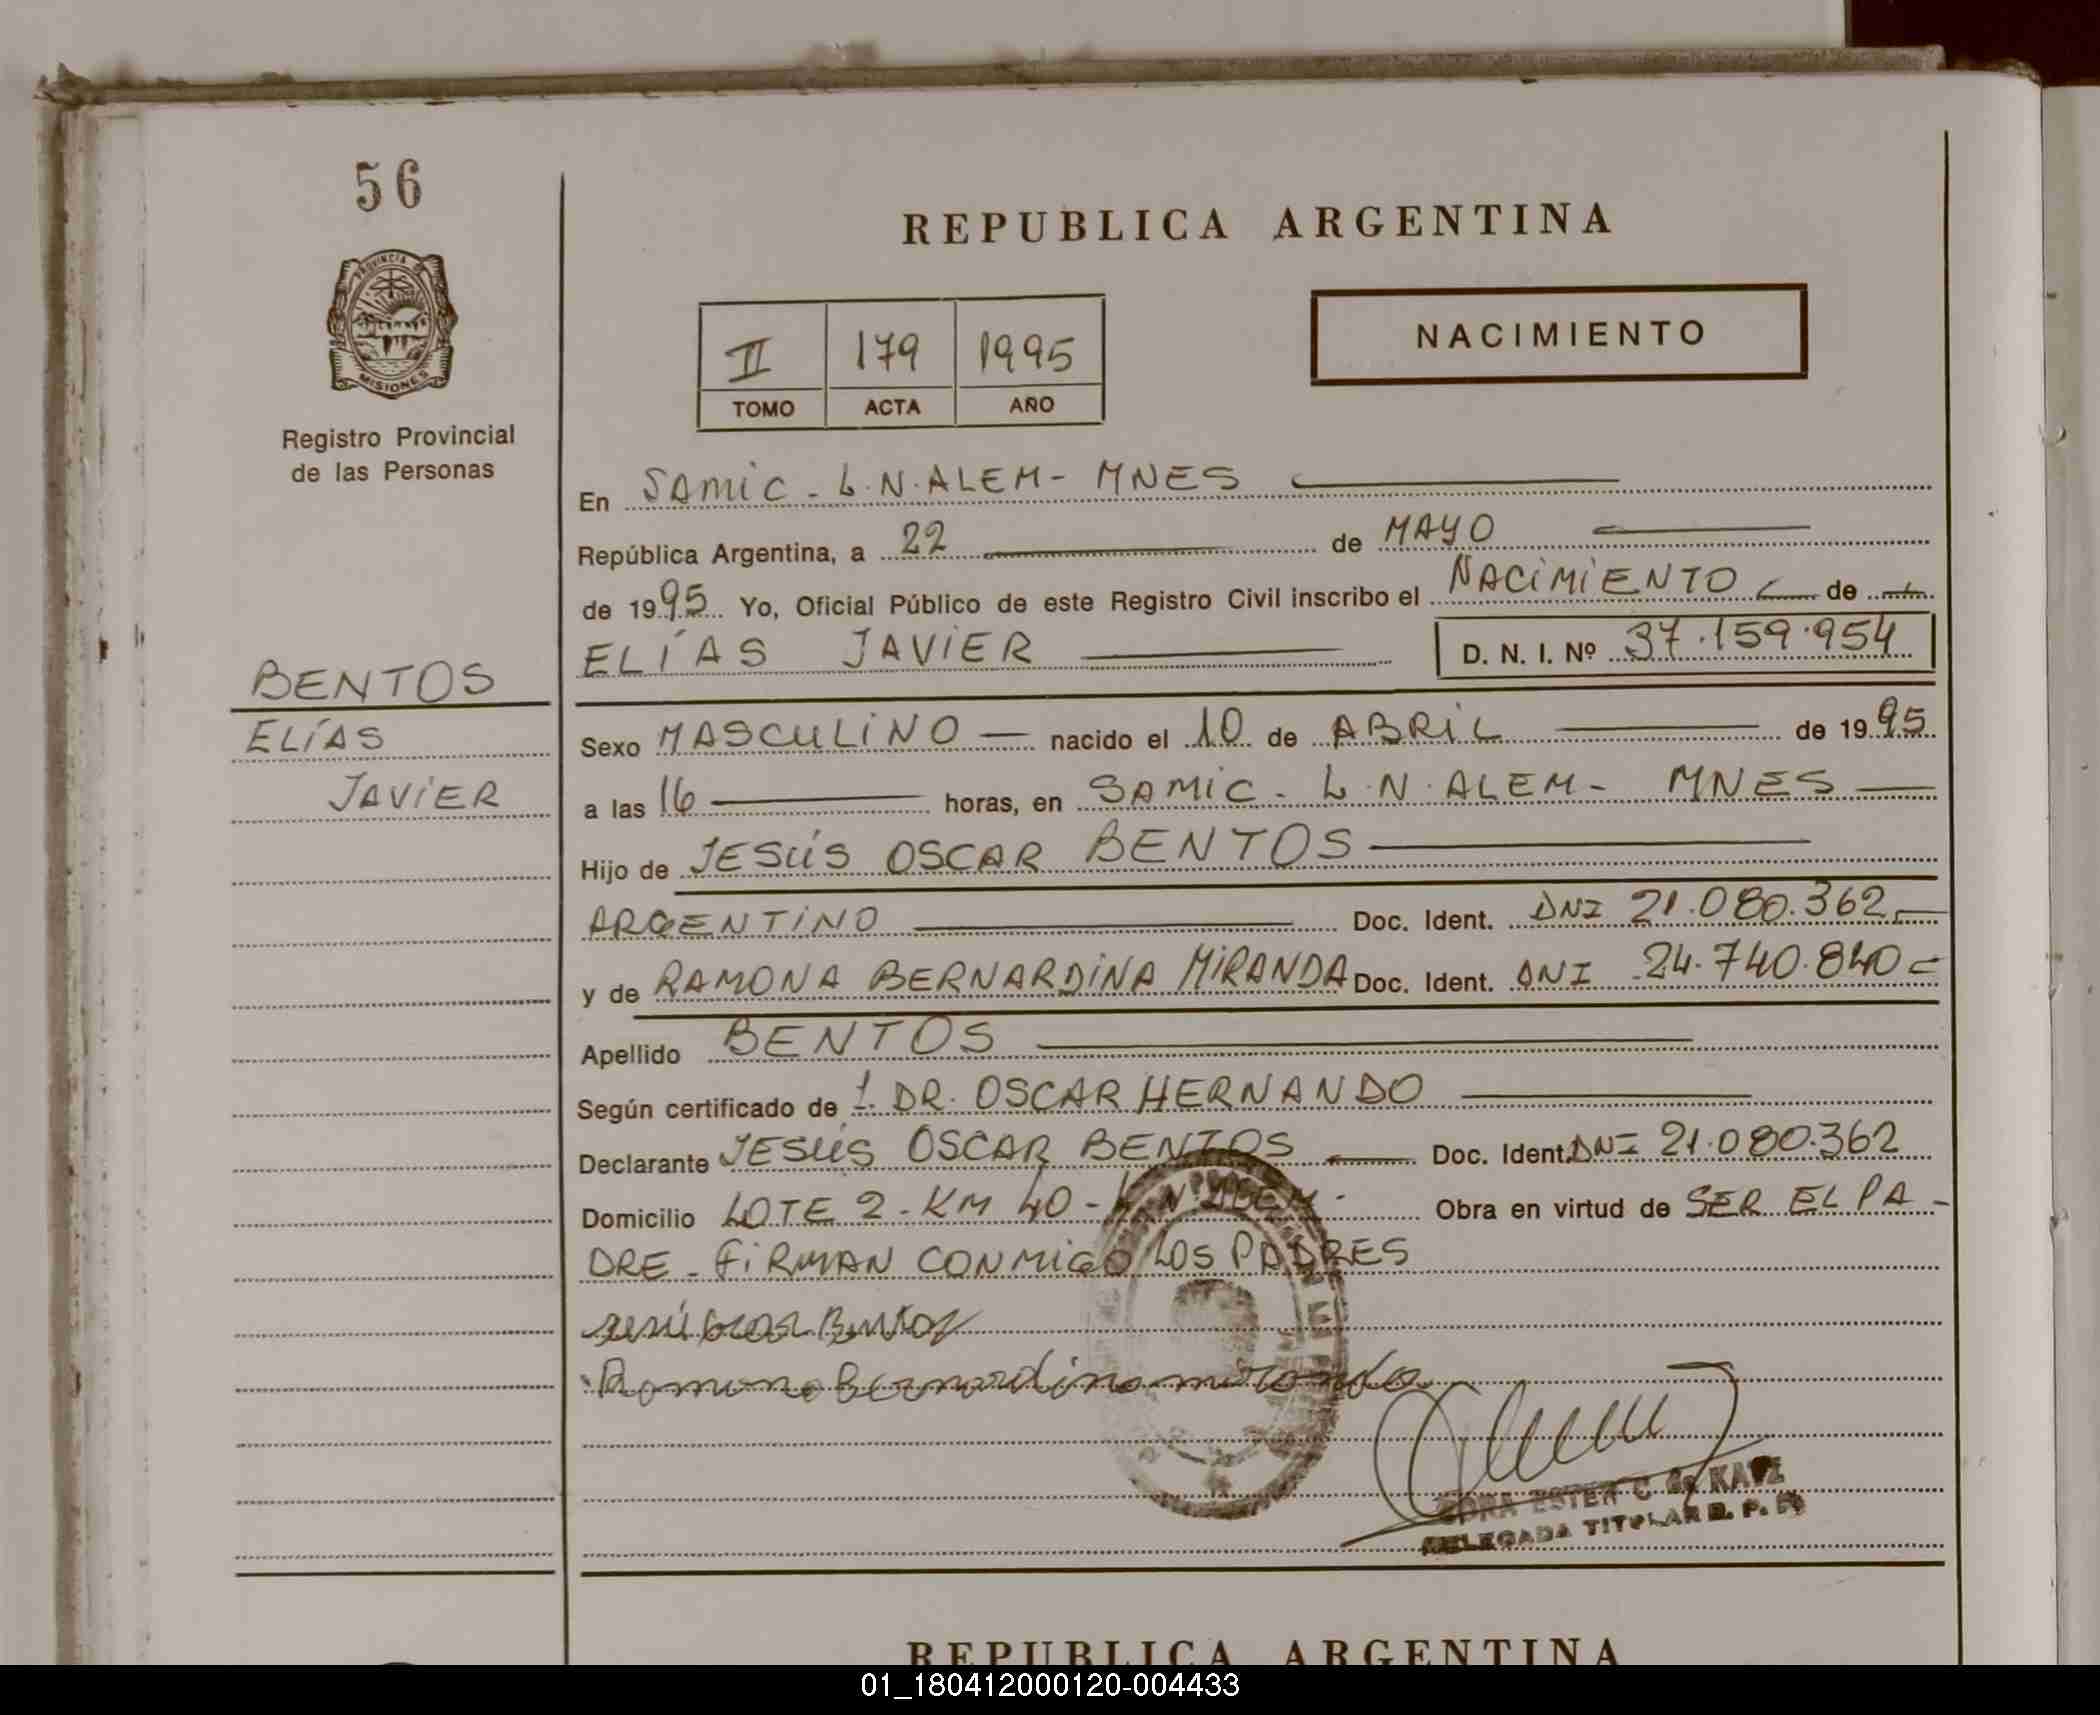 56
PROVINCIA DE
MISIONES
Registro Provincial
de las Personas
REPUBLICA ARGENTINA
II 179 1995
TOMO ACTA AÑO
NACIMIENTO
En SAMIC - L.N.ALEM - MNES
República Argentina, a 22 de MAYO
de 1995 Yo, Oficial Público de este Registro Civil inscribo el NACIMIENTO de
ELÍAS JAVIER D. N. I. Nº 37.159.954
BENTOS
ELÍAS
JAVIER
Sexo MASCULINO nacido el 10 de ABRIL de 1995
a las 16 horas, en SAMIC - L.N.ALEM - MNES
Hijo de JESÚS OSCAR BENTOS
ARGENTINO Doc. Ident. DNI 21.080.362
y de RAMONA BERNARDINA MIRANDA Doc. Ident. DNI 24.740.840
Apellido BENTOS
Según certificado de 1. DR. OSCAR HERNANDO
Declarante JESÚS OSCAR BENTOS Doc. Ident. DNI 21.080.362
Domicilio LOTE 2 - KM 40 - L.N.ALEM - Obra en virtud de SER EL PA -
DRE - FIRMAN CONMIGO LOS PADRES
Jesús Oscar Bentos
Ramona Bernardina miranda
ESTER C de KATZ
DELEGADA TITULAR R. P. P.
REPUBLICA ARGENTINA
01_180412000120-004433